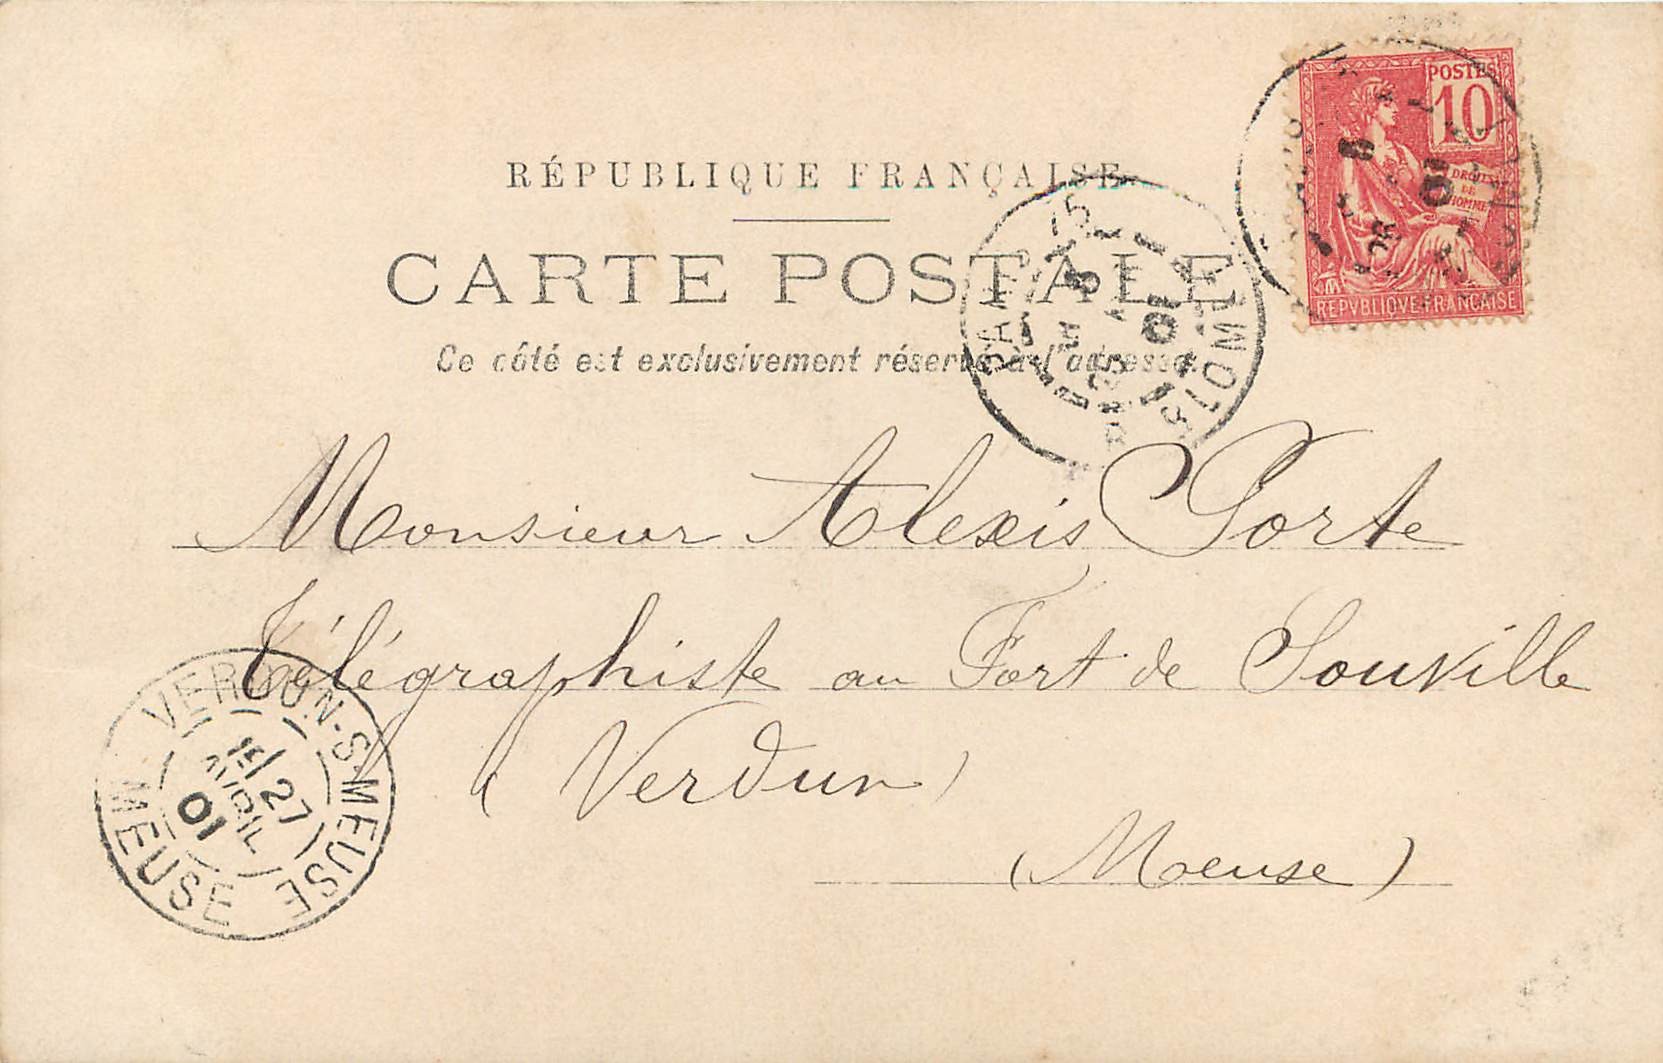 POSTES
10
DROITS
DE
HOMME
REPVBLIQVE FRANÇAISE
RÉPUBLIQUE FRANÇAISE
CARTE POSTALE
Ce côté est exclusivement réservé à l'adresse.
PARIS 15
01
Monsieur Alexis Porte
Télégraphiste au Fort de Souville
(Verdun)
(Meuse)
VERDUN-S-MEUSE
15/27
AVRIL
01
MEUSE